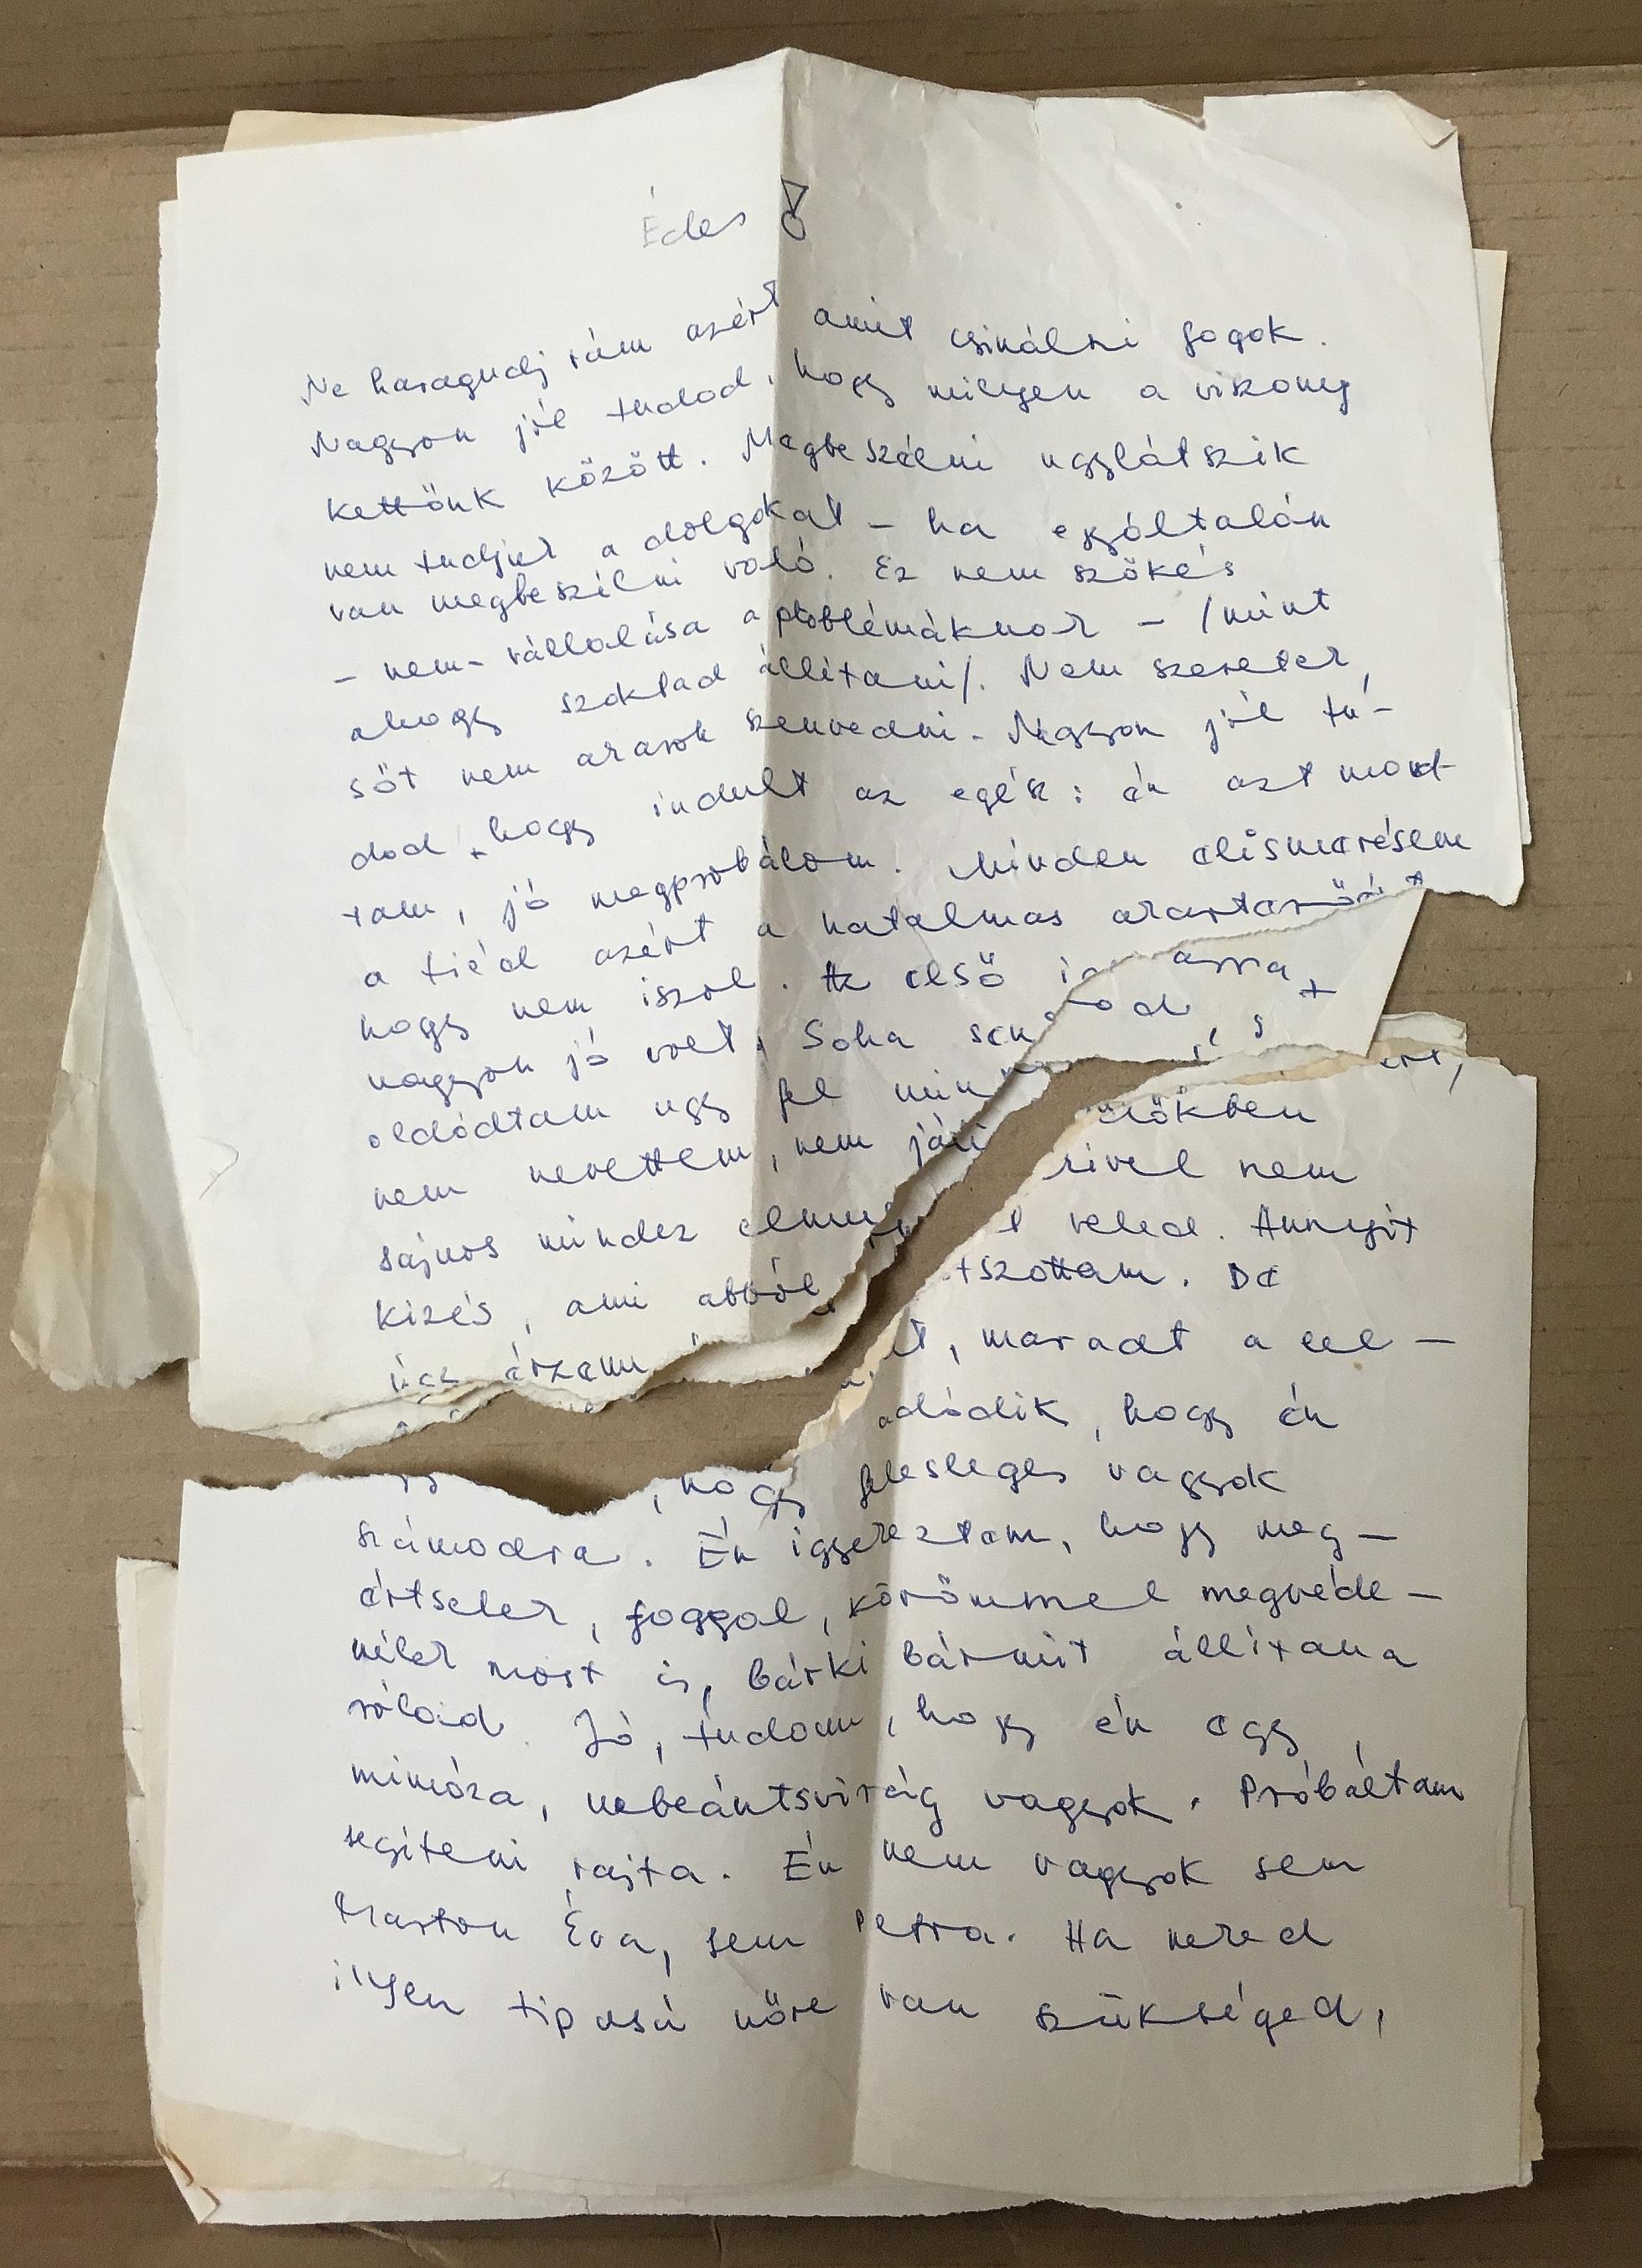 Édes
Ne haragudj rám azért amit csinálni fogok.
Nagyon jól tudod, hogy milyen a viszony
kettőnk között. Megbeszélni ugylátszik
nem tudjuk a dolgokat – ha egyáltalán
van megbeszélni való. Ez nem szökés
– nem-vállalása a problémáknak – /mint
ahogy szoktad állítani/. Nem szeretek,
sőt nem akarok szenvedni. Nagyon jól tu-
dod, hogy indult az egész: én azt mond-
tam, jó megpróbálom. Minden elismerésem
a tiéd azért a hatalmas akaraterőért
hogy nem iszol. Az első
nagyon jó volt, Soha
oldódtam ugy fel
nem nevettem, nem
sajnos mindez
kizés, ami abból
érzem
nőkben
kivel nem
veled. Annyit
játszottam. De
maradt a lel-
adódik, hogy én
, hogy felesleges vagyok
számodra. Én igyekeztem, hogy meg-
értselek, foggal, körömmel megvéde-
nélek most is, bárki bármit állítana
rólad. Jó, tudom, hogy én egy
mimóza, nebáántsvirág vagyok. Próbáltam
segíteni rajta. Én nem vagyok sem
Marton Éva, sem Petra. Ha neked
ilyen tipusú nőre van szükséged,